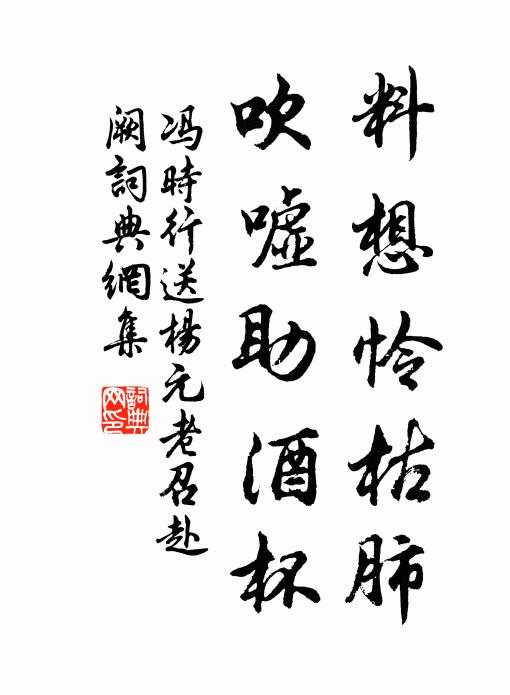 料想怜枯肺
吹嘘助酒杯
冯時行送楊元老召赴
阙詞典網集
詞典網印